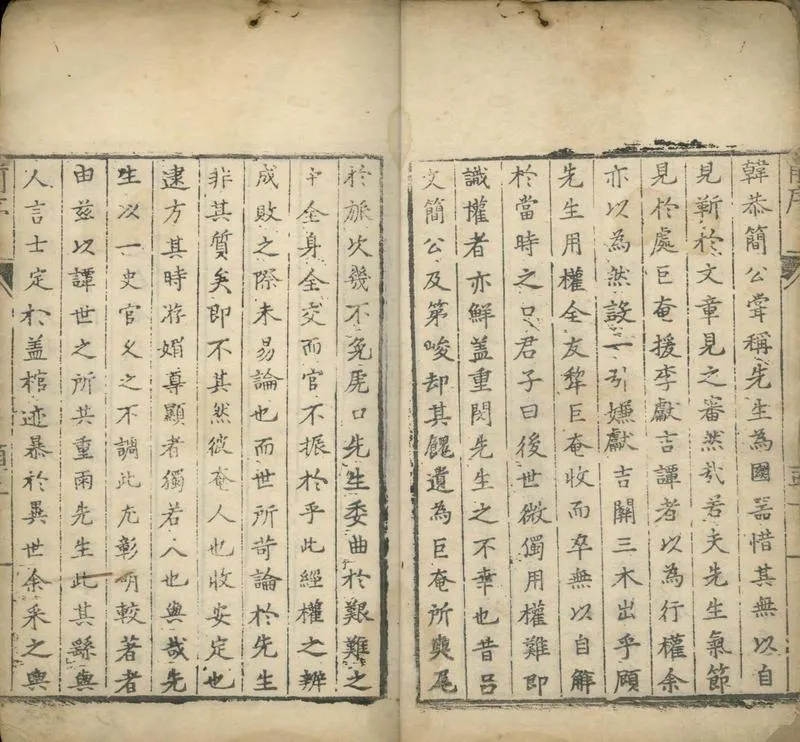 韓恭簡公甞稱先生為國噐惜其無以自
見靳於文章見之審然㢤若夫先生氣節
見於處巨奄援李獻吉譚者以為行權余
亦以為然設一引嫌獻吉關三木出乎顧
先生用權全友犂巨奄收而卒無以自解
於當時之口君子曰後世微獨用權難即
識權者亦鮮盖重閔先生之不幸也昔呂
文簡公及第峻却其餽遺為巨奄所輿尾
於旅次幾不免虎口先生委曲於艱難之
中全身全交而官不振於乎此經權之辨
成敗之際未易論也而世所苛論於先生
非其質矣即不其然彼奄人也收安定也
逮方其時㳺媚尊顯者獨若人也與㢤先
生以一史官乂之不調此尤彰明較著者
由兹以譚世之所共重兩先生此其繇與
人言士定於盖棺迹暴於異世余采之輿